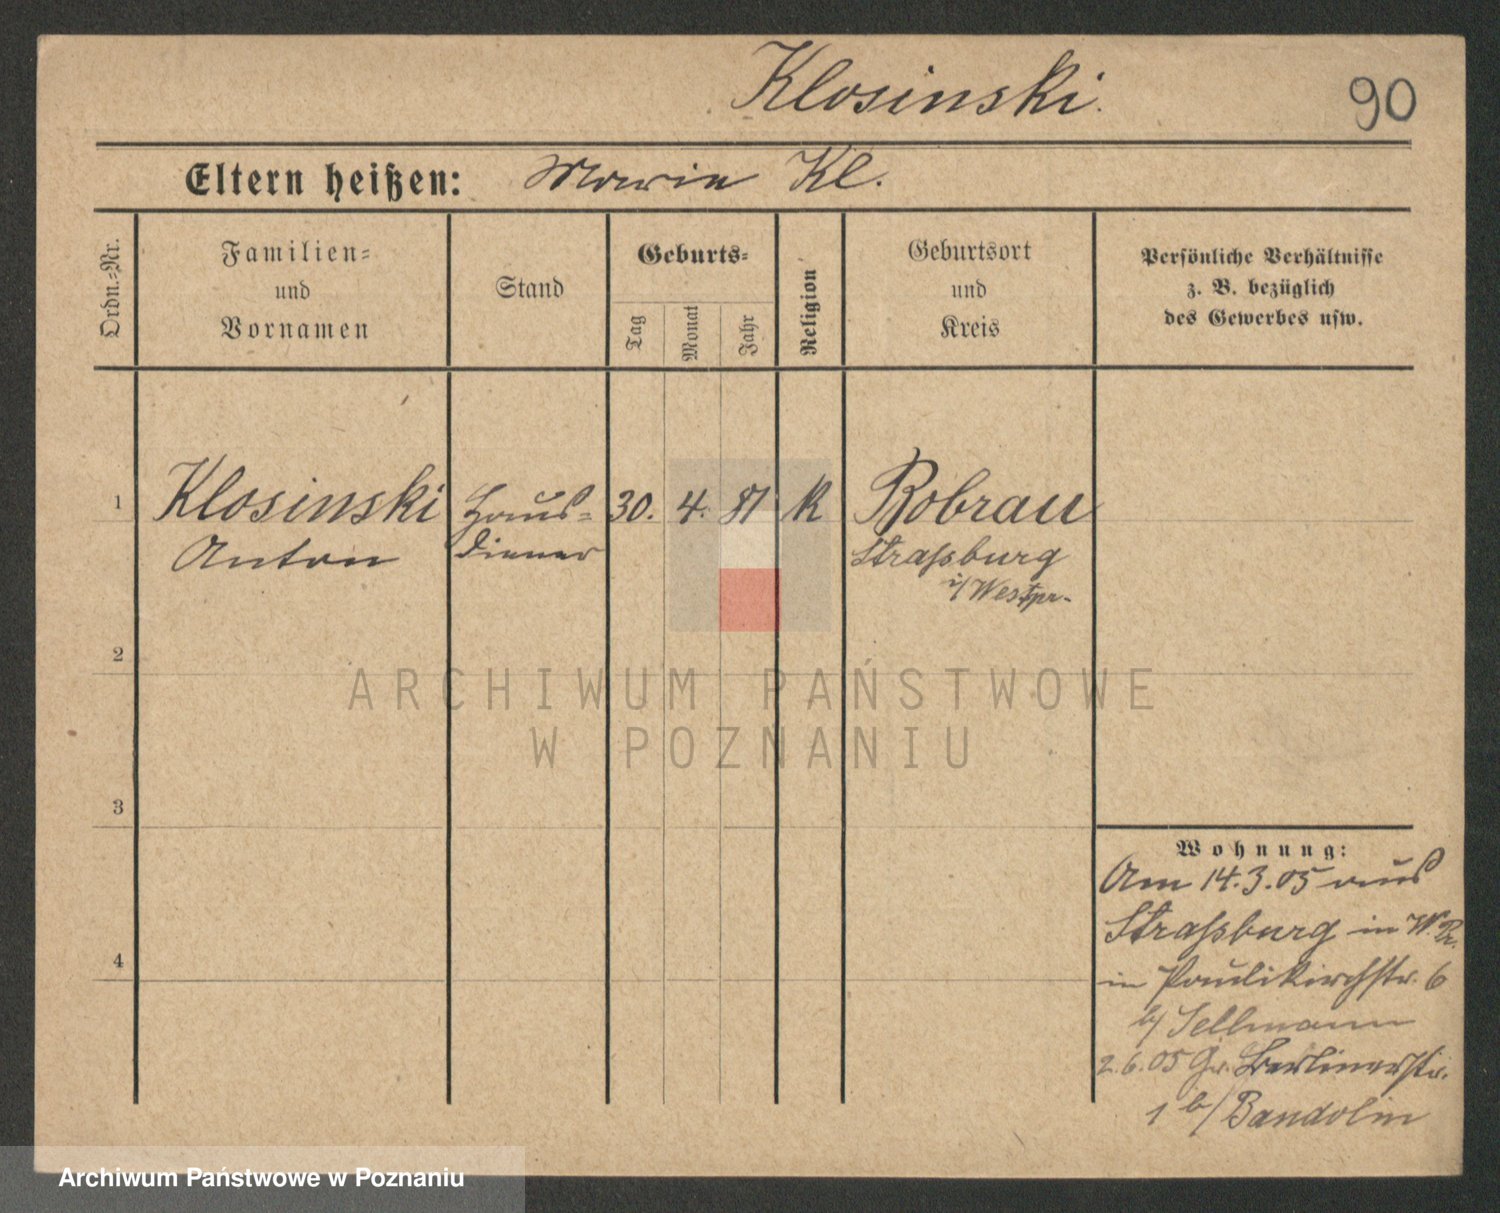 Klosinski.
90
Eltern heißen: Marie Kl.
Ordn.-Nr.
Familien-
und
Vornamen
Stand
Geburts-
Tag
Monat
Jahr
Religion
Geburtsort
und
Kreis
Persönliche Verhältnisse
z. B. bezüglich
des Gewerbes usw.
1 Klosinski Haus- 30. 4. 81 K Bobrau
Anton diener Straßburg
i/Westpr.
2
ARCHIWUM PAŃSTWOWE
W POZNANIU
3
Wohnung:
Am 14.3.05 aus
Straßburg in W. Pr.
4
in Paulikirchstr. 6
b/ Sellmann
2.6.05 Gr. Berlinerstr.
1 b/ Bandolin
Archiwum Państwowe w Poznaniu